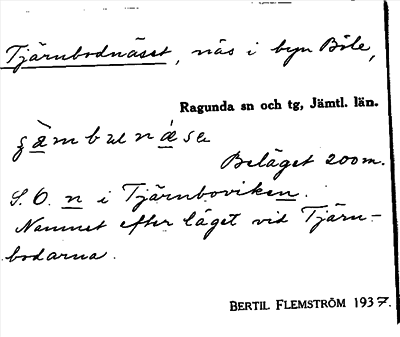 Tjärnbodnäset, näs i byn Böle,
Ragunda sn och tg, Jämtl. län.
Beläget 200m.
S.O. n i Tjärnboviken.
Namnet efter läget vid Tjärn-
bodarna.
BERTIL FLEMSTRÖM 1937.